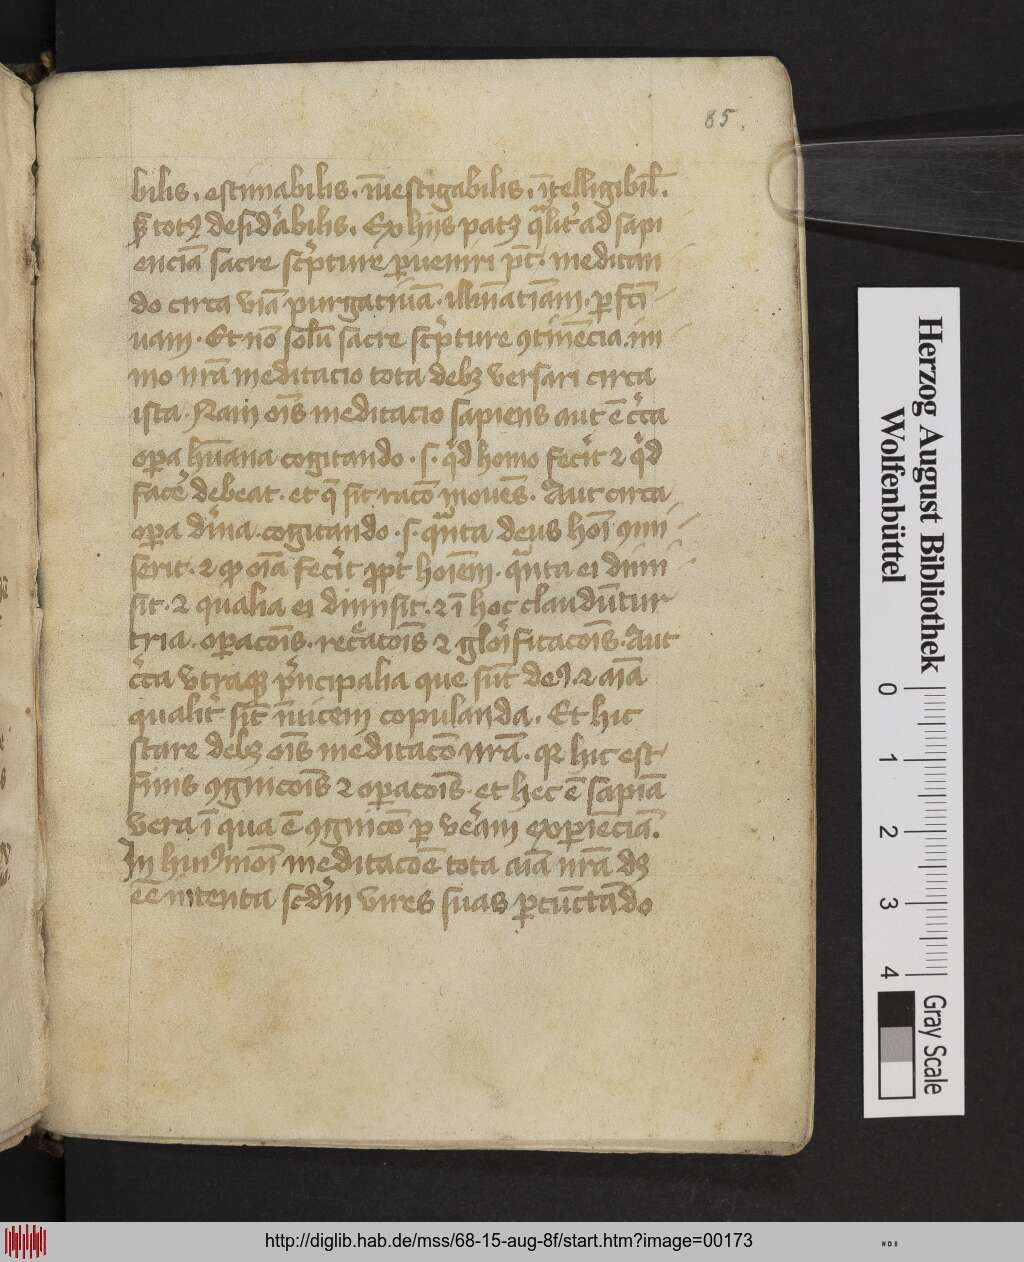 85.
bilis. estimabilis. īuestigabilis. ītelligibil̄.
s̄ totꝫ desid̾abilis. Ex hijs patꝫ qͣlit̾ ad sapi
enciā sacre sc̾pture ꝑueniri pt̄. meditan
do circa viā purgatiuā. illuīatiuam. ꝑfcī
uam. Et nō solū sacre sc̾pture ꝯtinēcia. im
mo nrā meditacio tota debꝫ versari circa
ista. Nam oīs meditacio sapiens aut ē cͥca
oꝑa hūana cogitando. s. qͥd homo fecit ⁊ qͥd
face̾ debeat. et q̄ sit racō mouēs. Aut circa
oꝑa diͥna. cogitando. s. qͣnta deus hoī ꝯmi
serit. ⁊ ꝙ oīa fecit ꝓpt̾ hoīem. qͣnta ei dimi
sit. ⁊ qualia ei dimisit. ⁊ ī hoc claudūtur
tria. oꝑacōis. rec̾atōis ⁊ glōificacōis. Aut
cͥca vtraqꝫ pͥncipalia que sūt deꝰ. ⁊ aīa
qualit̾ sīt īuicem copulanda. Et hic
stare debꝫ oīs meditacō nrā. qꝛ hic est
finis ꝯgnicōis ⁊ oꝑacōis. et hec ē sapiā
vera ī qua ē ꝯgnicō ꝑ ve̾am exꝑiēciā.
In huiꝰmōi meditacōe tota aīa nrā dꝫ
eē intenta scd̾m vires suas ꝑcūctādo
Herzog August Bibliothek
Wolfenbüttel
0 1 2 3 4
Gray Scale
http://diglib.hab.de/mss/68-15-aug-8f/start.htm?image=00173